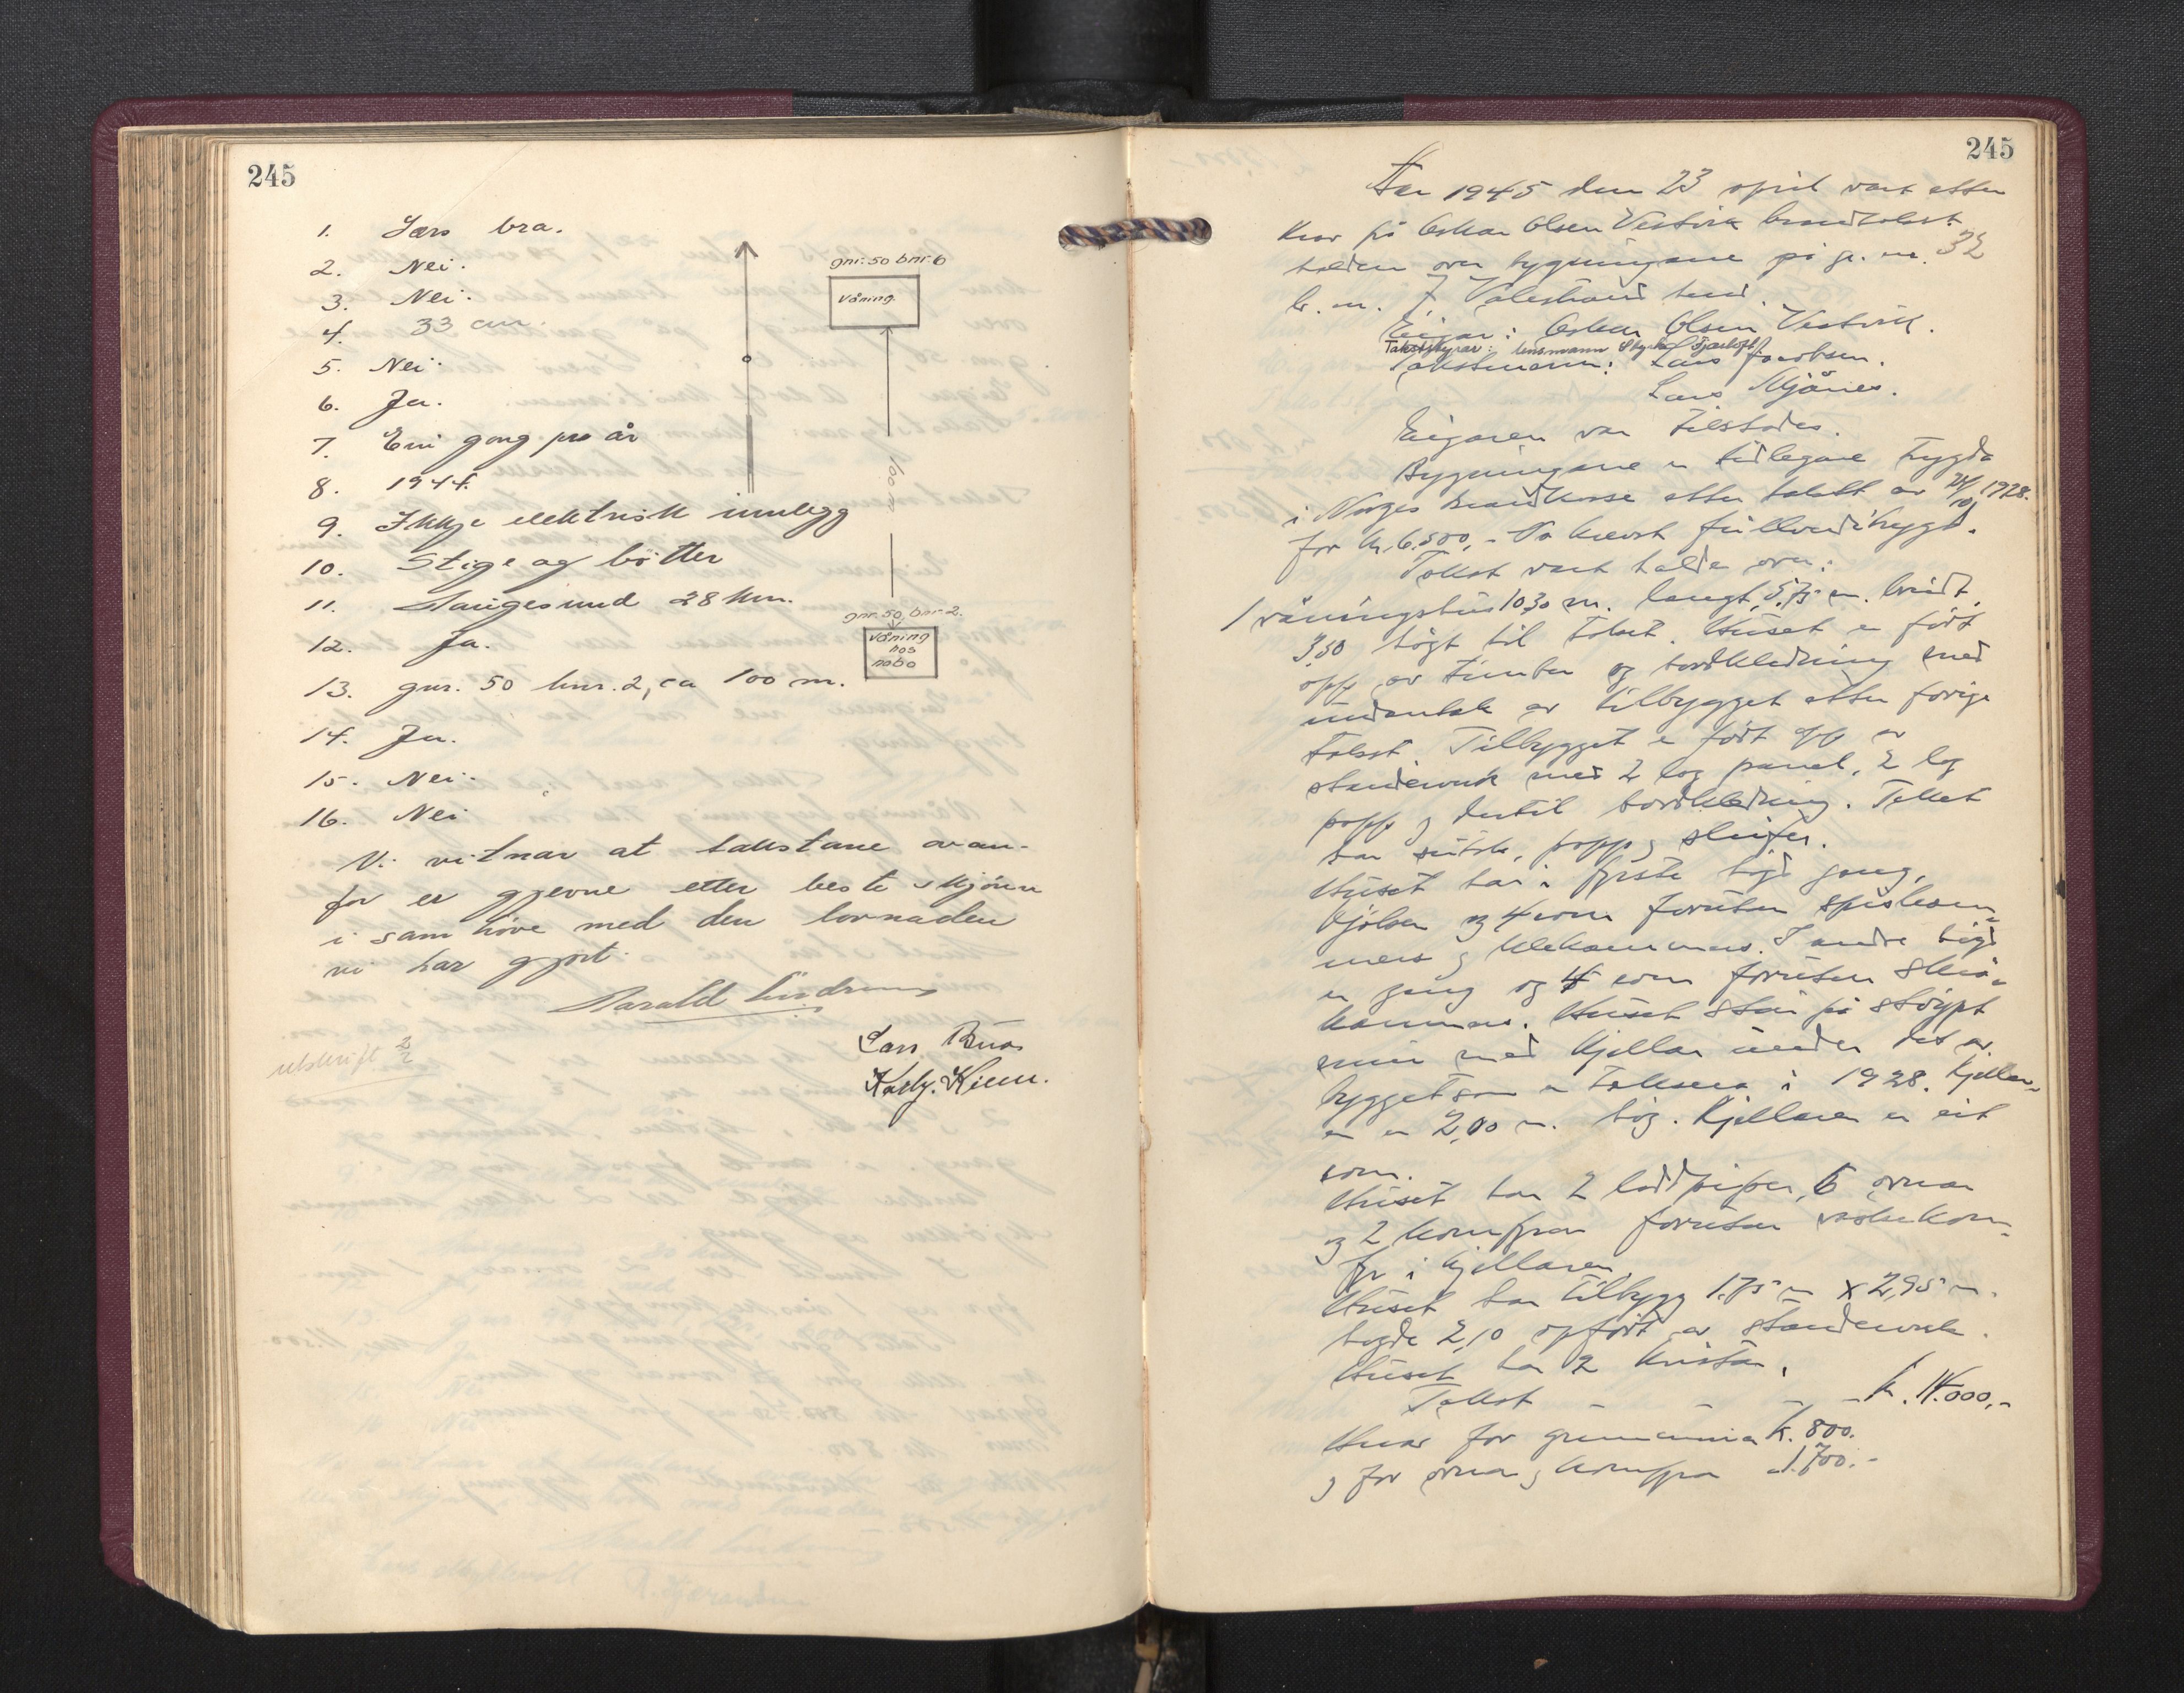 245
1. Særs bra.
2. Nei.
3. Nei.
4. 33 cm.
5. Nei.
6. Ja.
7. Ein gong pro år
8. 1944.
9. Ikkje elektrisk innlegg
10. Stige og bötter
11. Haugesund 28 km.
12. Ja.
13. gnr. 50 bnr. 2, ca 100 m.
14. Ja.
15. Nei.
16. Nei
Vi vitnar at takstane ovan-
for er gjevne etter beste skjönn
i samhöve med den lovnaden
vi har gjort.
Harald
Lars
utskrift 2/2
gnr. 50 bnr 6
Våning.
100 m
gnr. 50, bnr 2.
Våning
hos
nabo
245
År 1945 den 23 april vart etter
krav på Oskar Olsen Vestvik brandtakst
halden over bygningane på g. nr. 32
b. nr. 7 Valestrand herad.
Eigar: Oskar Olsen Vestvik.
Takststyrar: lensmann
Takstmenn: Lars Jacobsen.
Lars Mjånes.
Eigaren var tilstades.
Bygningane er tidlegare trygda
i Norges Brandkasse etter takst av 24/10 1928.
for kr. 6.500,- No krevst fullverditrygd.
Takst vart halde over:
1 våningshus 10,30 m. langt, 5,75 m. breidt,
3,50 högt til taket. Huset er fört
opp av timber og bordkledning med
undantak av tilbygget etter forrige
takst. Tilbygget er fört opp av
standerverk med 2 lag panel, 2 lag
papp og dertil bordkledning. Taket
har sutak, papp og skifer.
Huset har i fyrste högd gang,
kjöken og 4 rom foruten spiskam-
mers og klekammers. I andre högd
er gang og 4 rom foruten skrå-
kammers. Huset står på stöypt
mur med kjellar under det av
bygget som er taksera i 1928. Kjellar-
en er 2,00 m. hög. Kjellaren er eit
rom.
Huset har 2 loddpiper, 6 ovnar
og 2 komfyrar foruten vaskekom-
fyr i kjellaren.
Huset har tilbygg 1.75 m x 2,95 m.
högde 2,10 opfört av standerverk.
Huset har 2 kvistar.
Takst - - - - kr. 14.000,-
Hvorav for grunnmur kr. 800.
og for ovnar og komfyrar - 1.700.-